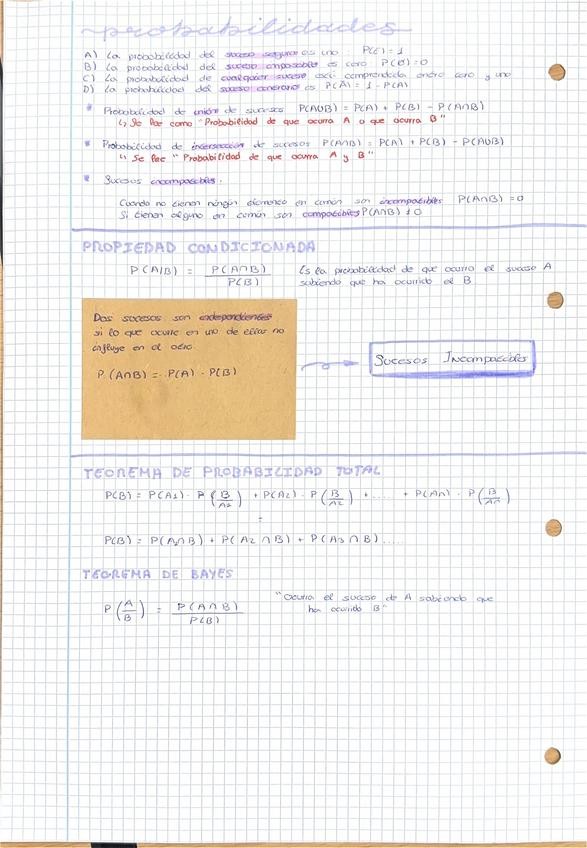 probabilidades
A) La probabilidad del suceso seguro es uno : P(E) = 1
B) La probabilidad del suceso imposible es cero P(Ø) = 0
C) La probabilidad de cualquier suceso está comprendida entre cero y uno
D) La probabilidad del suceso contrario es P(Ā) = 1 - P(A)
* Probabilidad de unión de sucesos P(A∪B) = P(A) + P(B) - P(A∩B)
↳ Se lee como "Probabilidad de que ocurra A o que ocurra B"
* Probabilidad de intersección de sucesos P(A∩B) = P(A) + P(B) - P(A∪B)
↳ Se lee "Probabilidad de que ocurra A y B"
* Sucesos incompatibles.
Cuando no tienen ningún elemento en común son incompatibles P(A∩B) = 0
Si tienen alguno en común son compatibles P(A∩B) ≠ 0
PROPIEDAD CONDICIONADA
P(A/B) = P(A∩B) / P(B) Es la probabilidad de que ocurra el suceso A
sabiendo que ha ocurrido el B
Dos sucesos son independientes
si lo que ocurre en uno de ellos no
influye en el otro
P(A∩B) = P(A) · P(B)
Sucesos Incompatibles
TEOREMA DE PROBABILIDAD TOTAL
P(B) = P(A1) · P(B/A1) + P(A2) · P(B/A2) + ..... + P(An) · P(B/An)
=
P(B) = P(A1∩B) + P(A2∩B) + P(A3∩B) .....
TEOREMA DE BAYES
P(A/B) = P(A∩B) / P(B)
"Ocurra el suceso de A sabiendo que
ha ocurrido B"